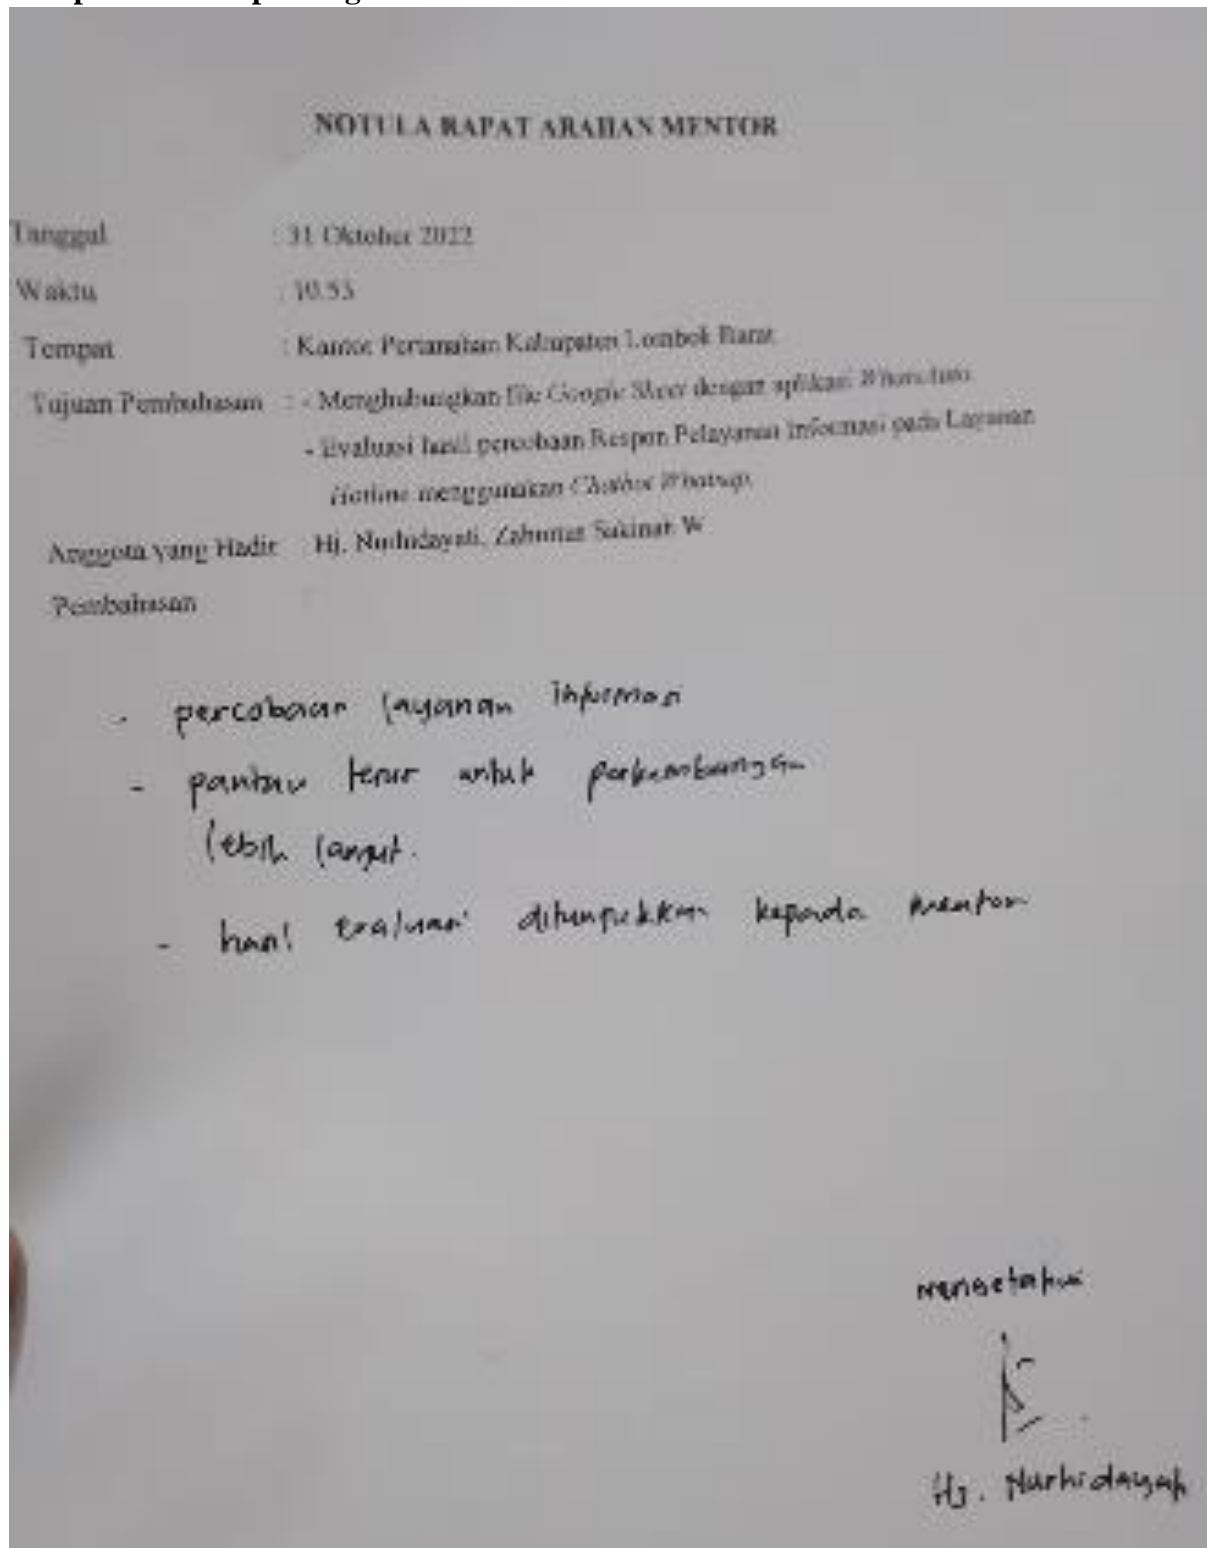 NOTULA RAPAT ARAHAN MENTOR
Tanggal : 31 Oktober 2022
Waktu : 10.53
Tempat : Kantor Pertanahan Kabupaten Lombok Barat
Tujuan Pembahasan : - Menghubungkan file Google Sheet dengan aplikasi
- Evaluasi hasil percobaan Respon Pelayanan Informasi pada Layanan
Hotline menggunakan Chatbot Whatsap
Anggota yang Hadir : Hj. Nurhidayati, Sakinah W
Pembahasan :
- percobaan layanan informasi
- pantau terus untuk perkembangan
lebih lanjut.
- hasil evaluasi ditunjukkan kepada mentor
mengetahui
Hj. Nurhidayah